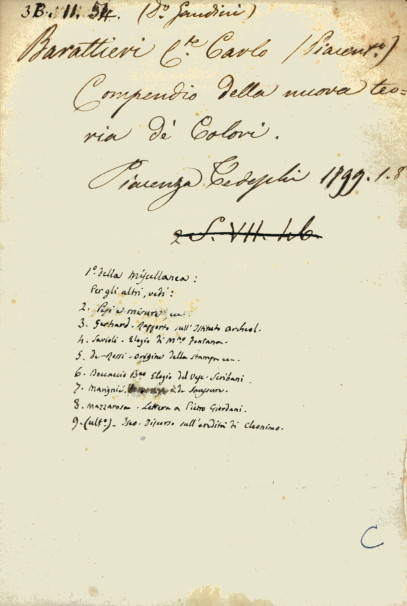 3B. 11. 54. (Do Gandini)
Barattieri Cte Carlo (Piacentno)
Compendio della nuova teo-
ria de' Colori.
Piacenza Tedeschi 1799. 1. 8o
2 S. VII.
1o della Miscellanea:
Per gli altri, vedi:
2. Pesi e misure,
3. Gerhard - Rapporto sull'Istituto archeol.
4. Savioli - Elogio di Mno Fontana
5. de Rossi - Origine della stampa
6. Boccaccio Bno Elogio del Vesc. Scribani
7. Marignié da Saussure.
8. Mazzarosa - Lettera a Pietro Giordani.
9. (ulto) - Iseo - Discorso sull'eredità di Cleonimo.
C